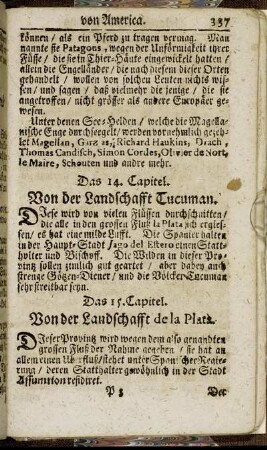 von America. 337
können / als ein Pferd zu tragen vermag. Man
nannte sie Patagons, wegen der Unförmigkeit ihrer
Füsse / die sie in Thier-Häute eingewickelt hatten /
allein die Engelländer / die nach diesem dieser Orten
gehandelt / wollen von solchen Leuten nichts wis-
sen / und sagen / daß vielmehr die jenige / die sie
angetroffen / nicht grösser als andere Europäer ge-
wesen.
Unter denen See-Helden / welche die Magella-
nische Enge durchseegelt / werden vornehmlich gezeh-
let Magellan, Richard Haukins, Drach,
Thomas Candisch, Simon Cordes, Olivier de Nort,
le Maire, Schouten und andre mehr.
Das 14. Capitel.
Von der Landschafft Tucuman.
DIese wird von vielen Flüssen durchschnitten /
die alle in den grossen Fluß la Plata sich ergies-
sen / es hat eine milde Lufft. Die Spanier halten
in der Haupt-Stadt Jago del Estero einen Statt-
halter und Bischoff. Die Wilden in dieser Pro-
vinz sollen zimlich gut geartet / aber dabey auch
strenge Götzen-Diener / und die Völcker Tucuman
sehr streitbar seyn.
Das 15. Capitel.
Von der Landschafft de la Plata.
DIeser Provintz wird wegen dem also genandten
grossen Fluß der Nahme gegeben / sie hat an
allem einen Uberfluß / stehet unter Spanischer Regie-
rung / deren Statthalter gewöhnlich in der Stadt
Assumtion residiret.
P 3 Der